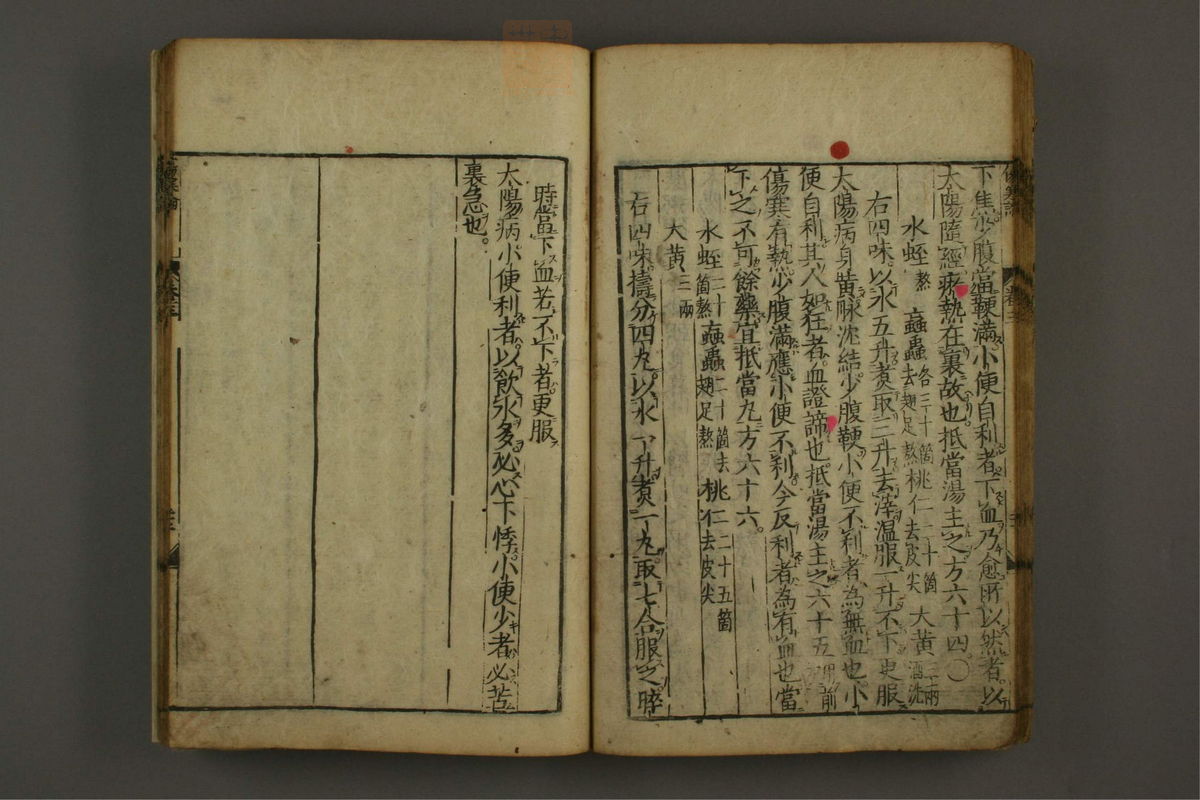 下焦少腹當鞕滿小便自利者下血乃愈所以然者以
太陽隨經瘀熱在裏故也抵當湯主之方六十四〇
水蛭熬 䗪蟲各三十箇去翅足熬 桃仁二十箇去皮尖 大黃三兩酒洗
右四味以水五升煮取三升去滓温服一升不下更服
太陽病身黃脉沈結少腹鞕小便不利者為無血也小
便自利其人如狂者血證諦也抵當湯主之六十五用前
傷寒有熱少腹滿應小便不利今反利者為有血也當
下之不可餘藥宜抵當丸方六十六
水蛭二十箇熬 蝱蟲二十箇去翅足熬 桃仁二十五箇去皮尖
大黃三兩
右四味擣分四丸以水一升煮一丸取七合服之晬
時當下血若不下者更服
太陽病小便利者以飲水多必心下悸小便少者必苦
裏急也
傷寒論
卷三